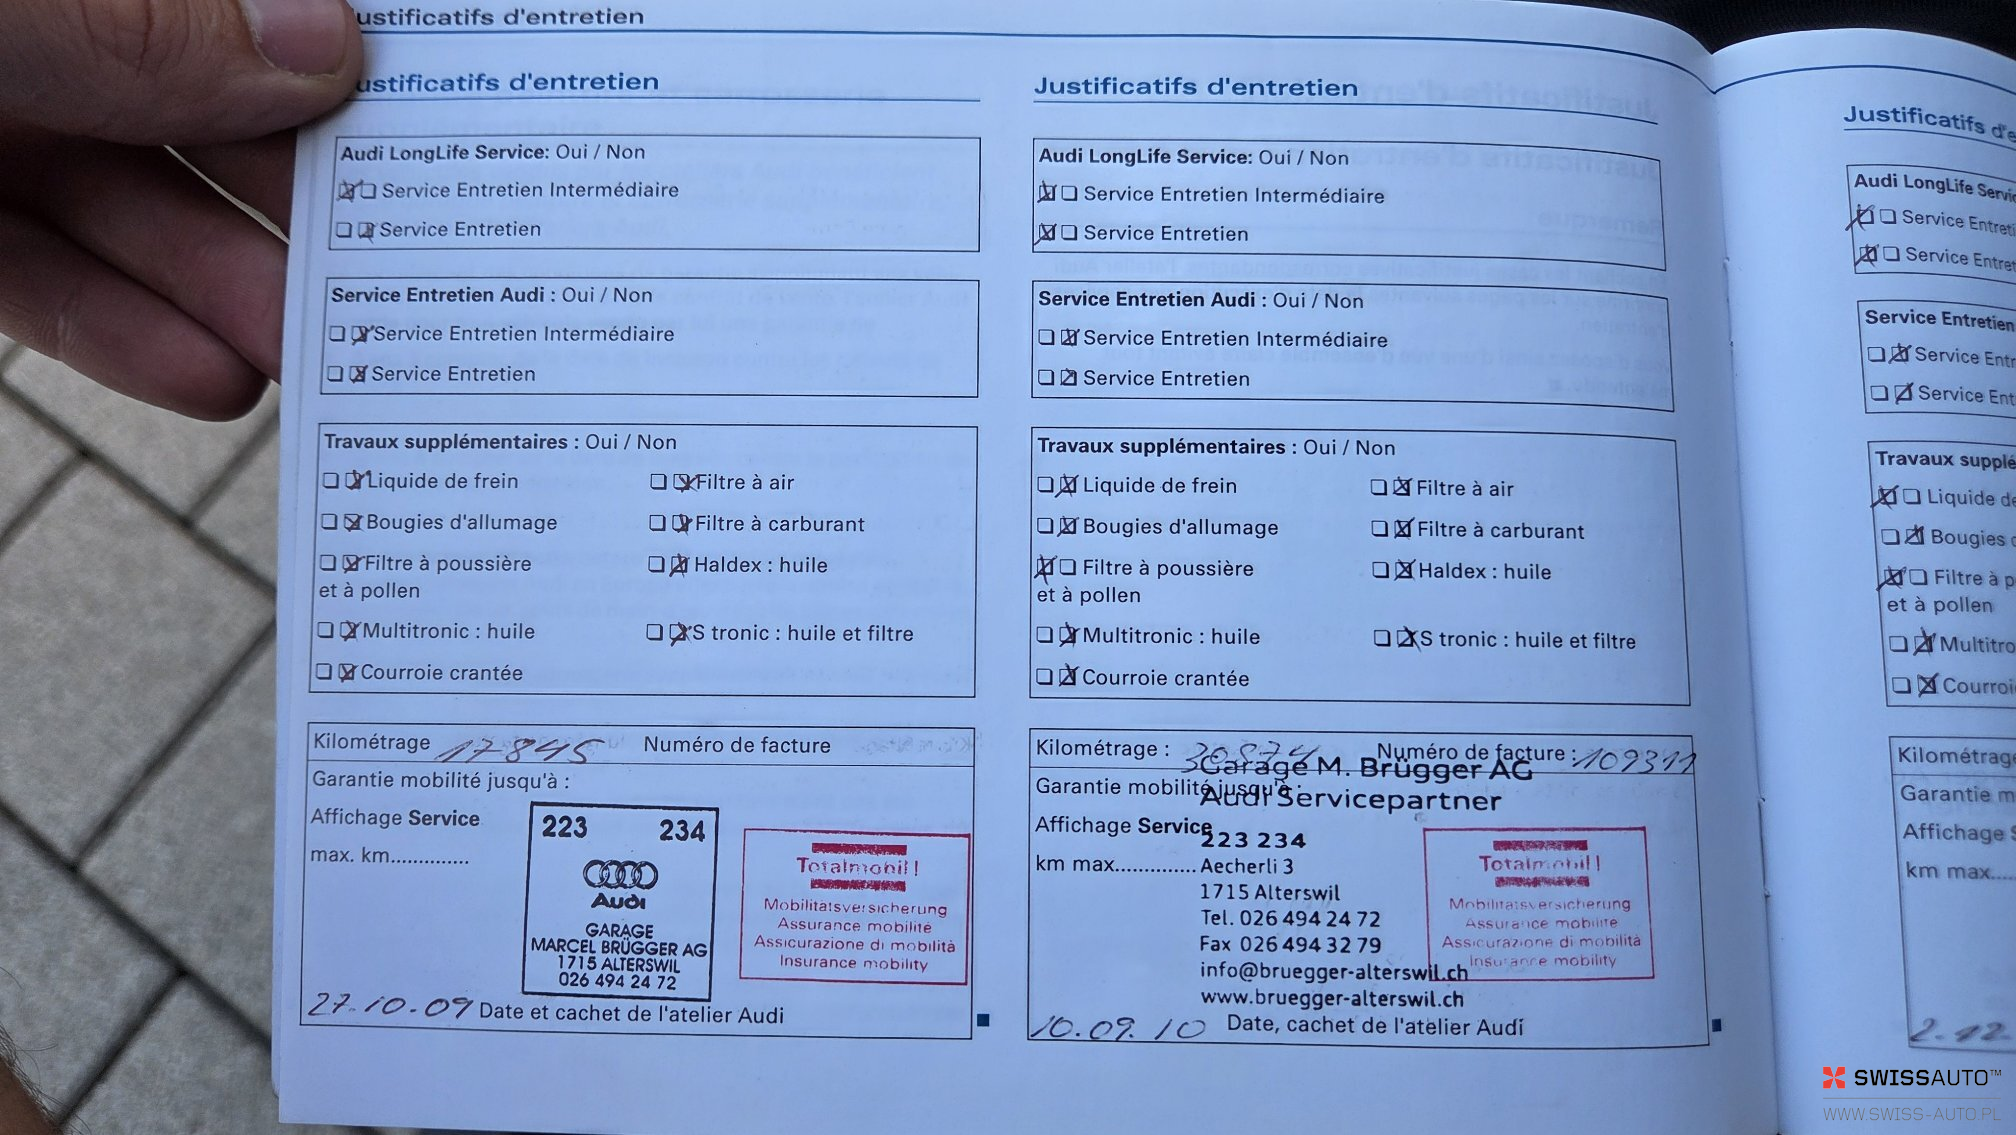 Justificatifs d'entretien
Justificatifs d'entretien
Audi LongLife Service: Oui / Non
Service Entretien Intermédiaire
Service Entretien
Service Entretien Audi : Oui / Non
Service Entretien Intermédiaire
Service Entretien
Travaux supplémentaires : Oui / Non
Liquide de frein Filtre à air
Bougies d'allumage Filtre à carburant
Filtre à poussière Haldex : huile
et à pollen
Multitronic : huile S tronic : huile et filtre
Courroie crantée
Kilométrage 17845 Numéro de facture
Garantie mobilité jusqu'à :
Affichage Service
max. km..............
223 234
Audi
GARAGE
MARCEL BRÜGGER AG
1715 ALTERSWIL
026 494 24 72
Totalmobil!
Mobilitätsversicherung
Assurance mobilité
Assicurazione di mobilità
Insurance mobility
27.10.09 Date et cachet de l'atelier Audi
Justificatifs d'entretien
Audi LongLife Service: Oui / Non
Service Entretien Intermédiaire
Service Entretien
Service Entretien Audi : Oui / Non
Service Entretien Intermédiaire
Service Entretien
Travaux supplémentaires : Oui / Non
Liquide de frein Filtre à air
Bougies d'allumage Filtre à carburant
Filtre à poussière Haldex : huile
et à pollen
Multitronic : huile S tronic : huile et filtre
Courroie crantée
Kilométrage : 30874 Numéro de facture : 109311
Garantie mobilité jusqu'à :
Affichage Service
km max..............
Garage M. Brügger AG
Audi Servicepartner
223 234
Aecherli 3
1715 Alterswil
Tel. 026 494 24 72
Fax 026 494 32 79
info@bruegger-alterswil.ch
www.bruegger-alterswil.ch
Totalmobil!
Mobilitätsversicherung
Assurance mobilité
Assicurazione di mobilità
Insurance mobility
10.09.10 Date, cachet de l'atelier Audi
Justificatifs d'e
Audi LongLife Servic
Service Entreti
Service Entret
Service Entretien
Service Entr
Service Ent
Travaux supplé
Liquide de
Bougies d
Filtre à p
et à pollen
Multitro
Courroi
Kilométrag
Garantie m
Affichage S
km max....
2.12.
SWISSAUTO™
WWW.SWISS-AUTO.PL